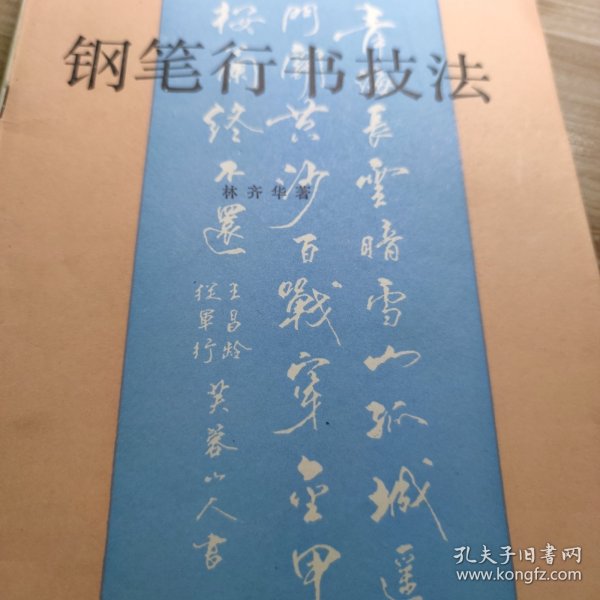 钢笔行书技法
林齐华著
青海长雲暗雪山孤城遥
門關黄沙百戰穿金甲
楼蘭终不還
王昌龄
從軍行
芙蓉山人書
孔夫子旧书网
www.kongfz.com